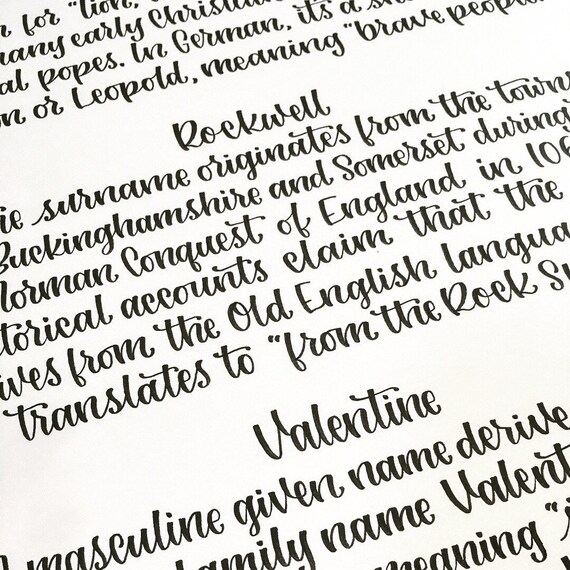 for "lion,
many early Christia
al popes. In German, it's a sh
on or Leopold, meaning "brave people
Rockwell
surname originates from the towns
Buckinghamshire and Somerset during
Norman Conquest of England in 106
torical accounts claim that the
ives from the Old English langua
translates to "from the Rock S
Valentine
masculine given name derive
family name Valent
meaning "